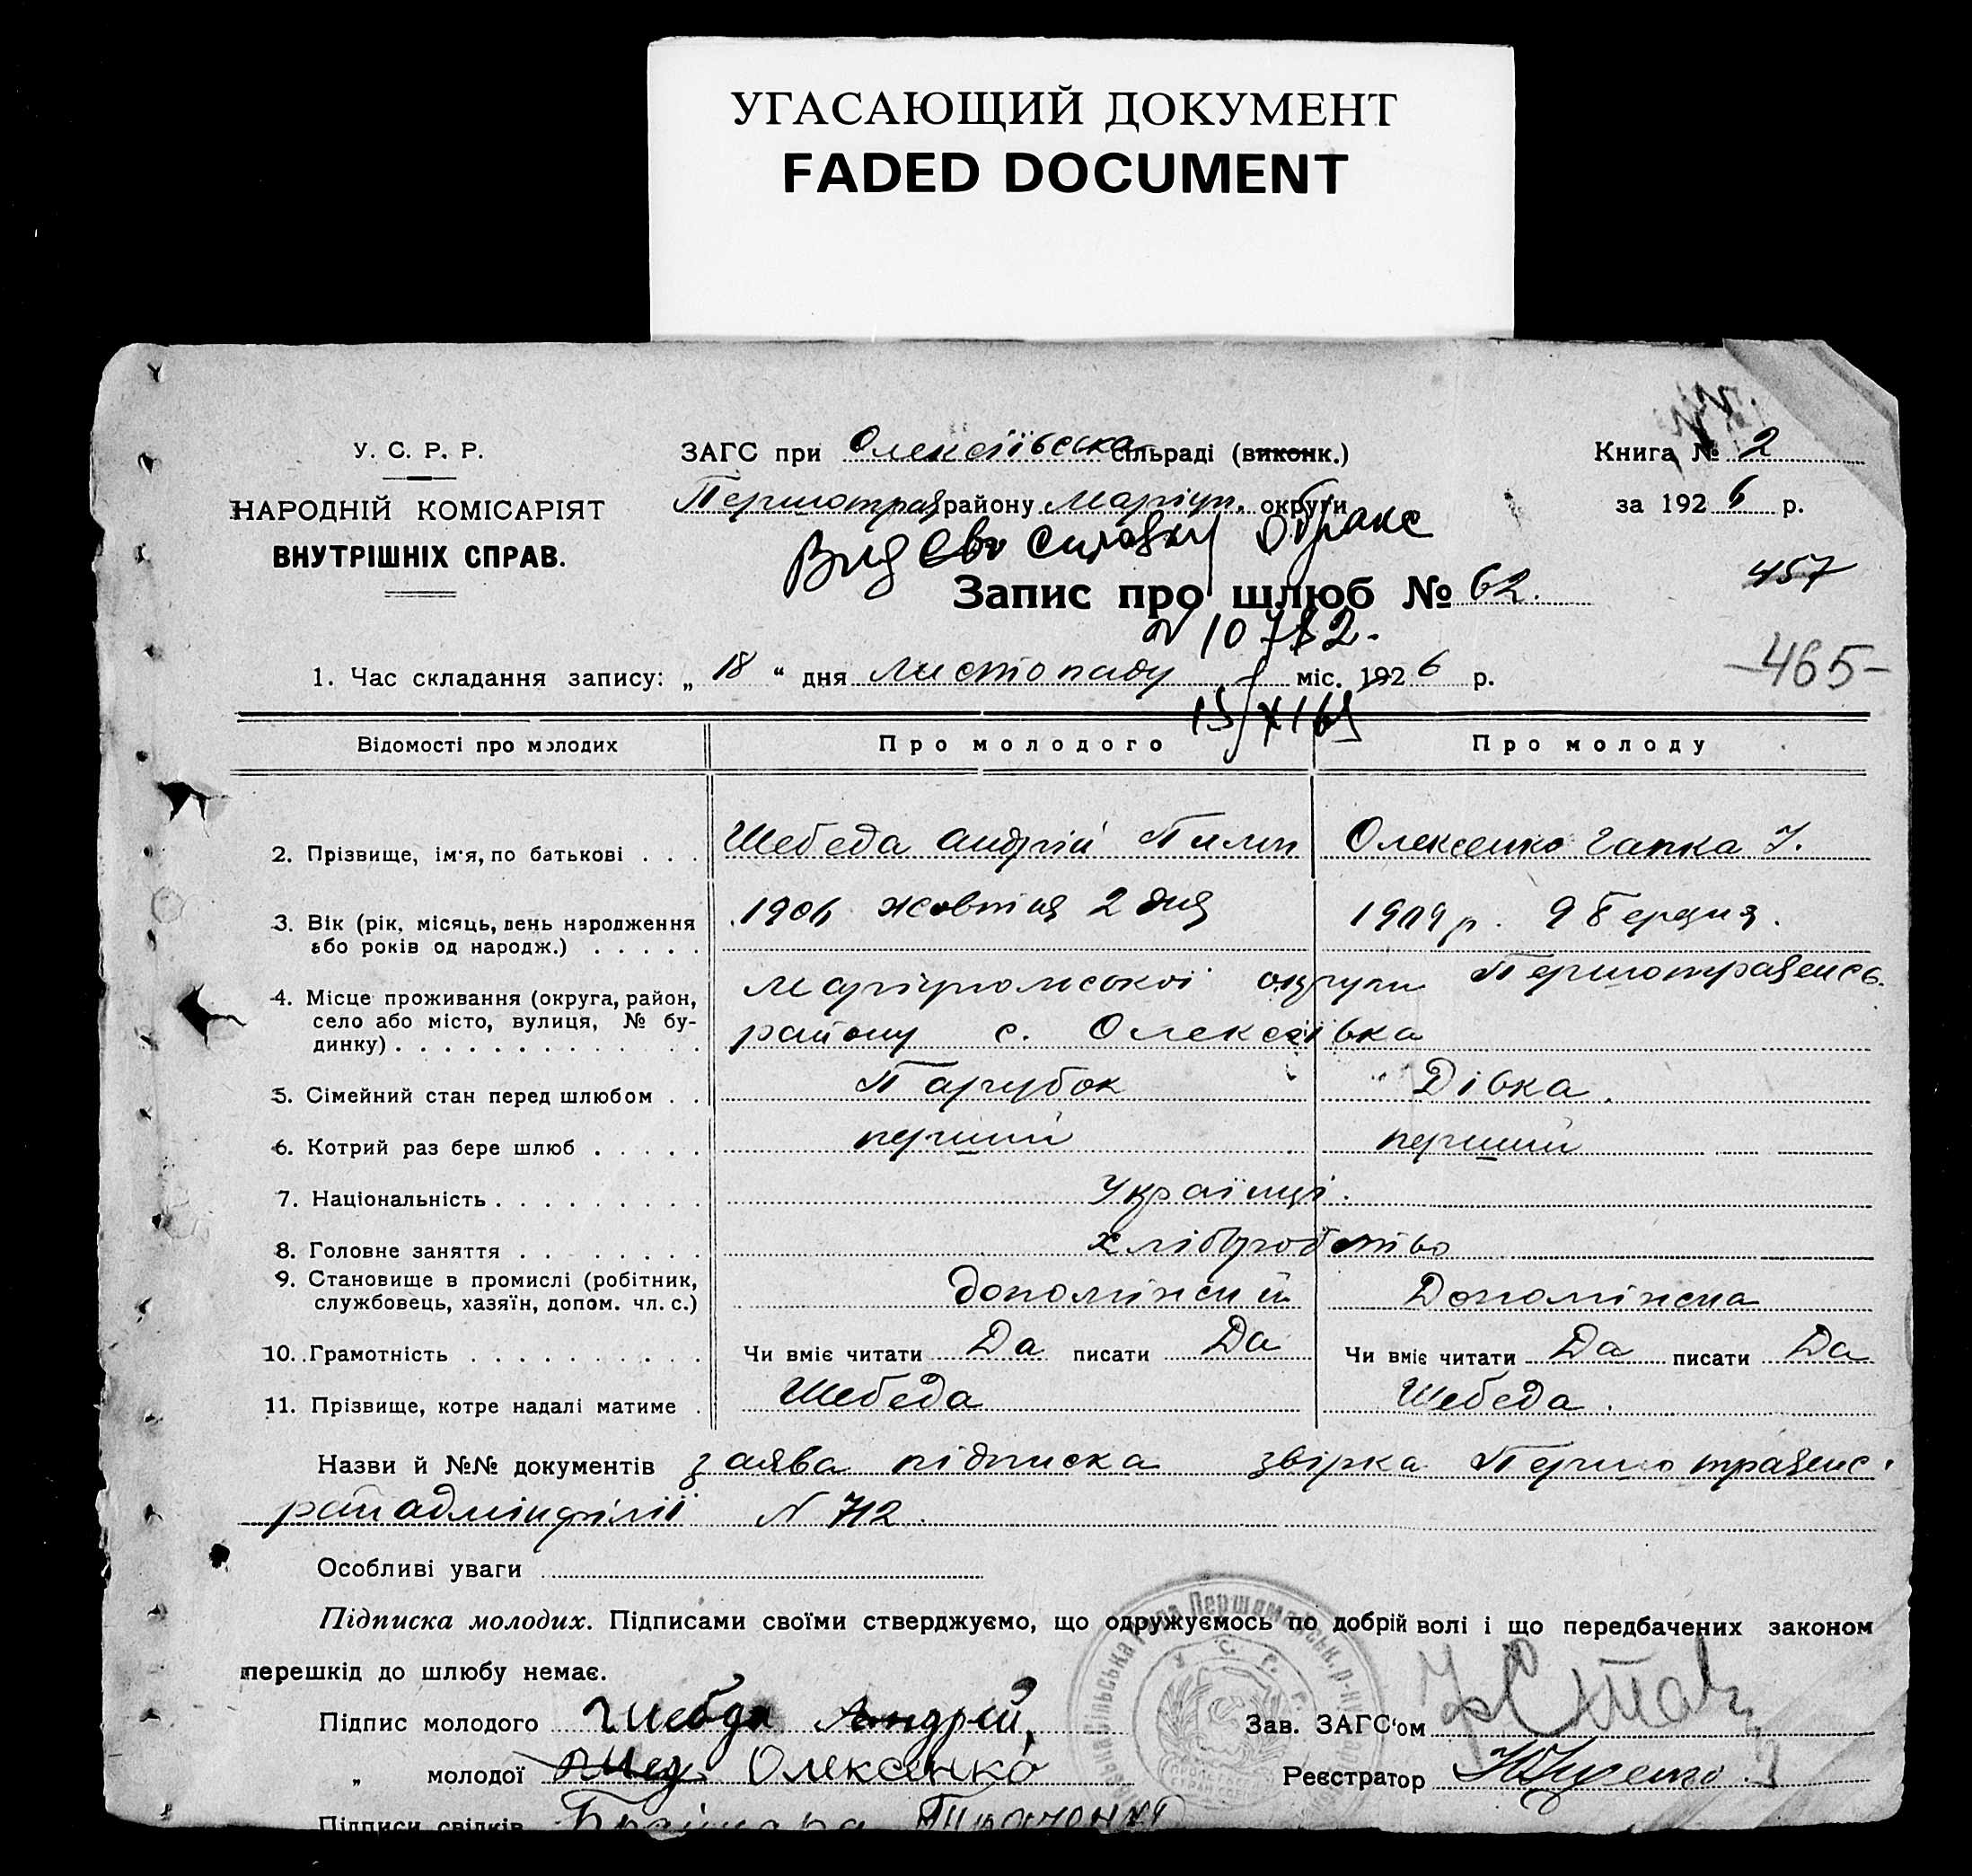 УГАСАЮЩИЙ ДОКУМЕНТ
FADED DOCUMENT
У. С. Р. Р.
НАРОДНІЙ КОМІСАРІЯТ
ВНУТРІШНІХ СПРАВ.
ЗАГС при Олексіївська сільраді (виконк.)
Першотрав району Маріуп. округи
Книга № 2
за 1926 р.
о браке
Запис про шлюб № 62.
457
1. Час складання запису: „ 18 “ дня листопаду міс. 1926 р.
-465-
Відомості про молодих Про молодого Про молоду
2. Прізвище, ім'я, по батькові . . . Шебеда Андрій Пилип Олексенко Гапка У.
3. Вік (рік, місяць, день народження 1906 жовтня 2 дня 1909 р. 9 Березня.
або років од народж.) . . . . .
4. Місце проживання (округа, район, Маріупольської округи Першотравенсь.
село або місто, вулиця, № бу- району с. Олексіївка
динку) . . . . . . . . . . . . .
5. Сімейний стан перед шлюбом . . Парубок Дівка.
6. Котрий раз бере шлюб . . . . . перший перший
7. Національність . . . . . . . . . Українці.
8. Головне заняття . . . . . . . . хліборобство
9. Становище в промислі (робітник,
службовець, хазяїн, допом. чл. с.) допоміжний Допоміжна
10. Грамотність . . . . . . . . . . Чи вміє читати Да писати Да Чи вміє читати Да писати Да
11. Прізвище, котре надалі матиме . Шебеда Шебеда.
Назви й №№ документів заява підписка звірка Першотравенс.
райадмінфілії N 712.
Особливі уваги
Підписка молодих. Підписами своїми стверджуємо, що одружуємось по добрій волі і що передбачених законом
перешкід до шлюбу немає.
Підпис молодого Шебда Андрей Зав. ЗАГС'ом
„ молодої Олексенко Реєстратор
Підписи свідків